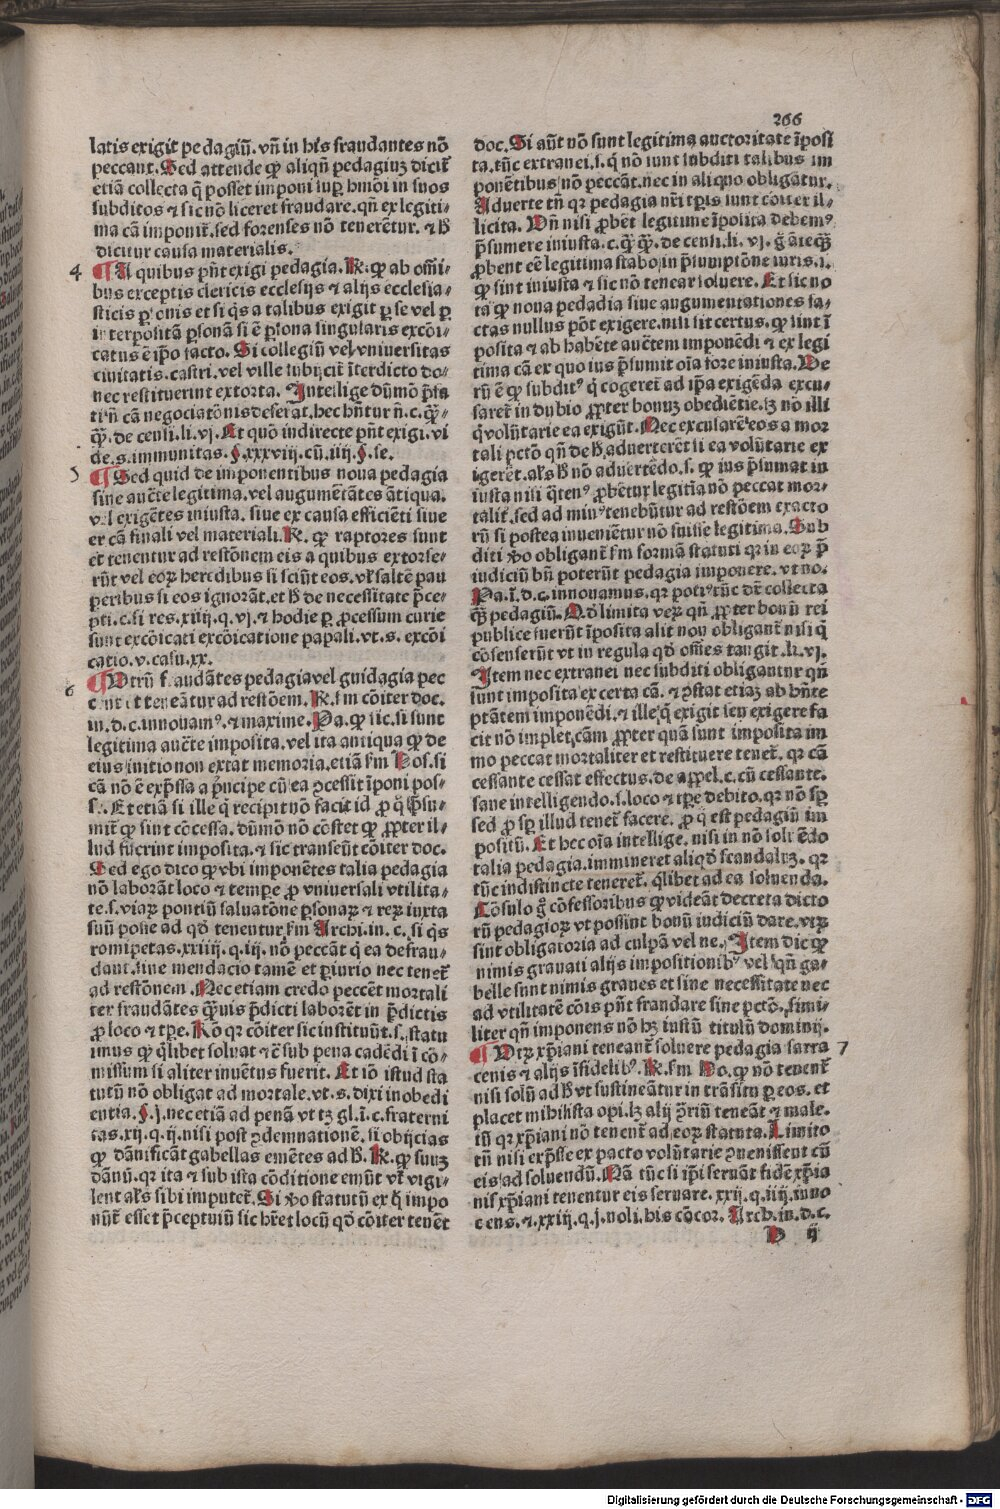 266
latis exigit pedagiū. vñ in his fraudantes nō
peccant. Sed attende ꝙ aliqñ pedagiuz dicit̄
etiā collecta q̄ posset imponi sup̱ hmōi in suos
subditos ⁊ sic nō liceret fraudare. qñ ex legiti⸗
ma cā imponit̄. sed forenses nō tenerētur. ⁊ ħ
dicitur causa materialis.
4 quibus pn̄t exigi pedagia. R̃. ꝙ ab om̄i⸗
bus exceptis clericis ecclesijs ⁊ alijs ecclesia⸗
sticis ꝑsonis et si q̄s a talibus exigit ꝑ se vel ꝑ
interpositā ꝑsonā si ē ꝑsona singularis excōi⸗
catus ē ip̄o facto. Si collegiū vel vniuersitas
ciuitatis. castri. vel ville subijcit̄ īterdicto do⸗
nec restituerint extorta. Intellige dūmō p̄fa
ti ñ cā negociatōnis deferāt. hec hn̄tur ñ. c. q̄q̄⸗
q̄. de censi. li. vj. Et quō indirecte pn̄t exigi. vi
de. s. immunitas. §. xxxvij. cū. iiij. §. se.
5 ¶ Sed quid de imponentibus noua pedagia
sine auc̄te legitima. vel augumētātes ātiqua.
vel exigētes iniusta. siue ex causa efficiēti siue
ex cā finali vel materiali. R̃. ꝙ raptores sunt
et tenentur ad restōnem eis a quibus extorse⸗
rūt vel eoꝝ heredibus si sciūt eos. vl̄ saltē pau
peribus si eos ignorāt. et ħ de necessitate p̄ce⸗
pti. c. si res. xiiij. q. vj. ⁊ hodie ꝑ ꝓcessum curie
sunt excōicati excōicatione papali. vt. s. excōi
catio. v. casu. xx.
6 ¶ Vtrū fraudātes pedagia vel guidagia pec
cent et teneātur ad restōem. R̃. ẜm cōiter doc.
in. d. c. innouam⁹. ⁊ maxime. Pa. ꝙ sic. si sunt
legitima auc̄te imposita. vel ita antiqua ꝙ de
eius initio non extat memoria. etiā ẜm Hos. si
cā nō ē exp̄ssa a p̄ncipe cū ea ꝯcessit īponi pos⸗
s. Et etiā si ille q̇ recipit nō facit id ꝓ q̊ p̄su⸗
mit̄ ꝙ sint cōcessa. dūmō nō cōstet ꝙ ꝓpter il⸗
lud fuerint imposita. ⁊ sic transeūt cōiter doc.
Sed ego dico ꝙ vbi imponētes talia pedagia
nō laborāt loco ⁊ tempe ꝓ vniuersali vtilita⸗
te. s. viaꝝ pontiū saluatōne ꝑsonaꝝ ⁊ reꝝ iuxta
suū posse ad qd̄ tenentur ẜm Archi. in. c. si q̄s
romipetas. xxiiij. q. iij. nō peccāt q̇ ea defrau⸗
dant. sine mendacio tamē et ꝑiurio nec tenet̄
ad restōnem. Nec etiam credo peccēt mortali
ter fraudātes q̄uis p̄dicti laborēt in p̄dictis
ꝓ loco ⁊ tꝑe. Rō qr cōiter sic instituūt. s. statu
imus ꝙ q̇libet soluat ⁊ c̄ sub pena cadēdi ī cō⸗
missum si aliter inuētus fuerit. Et iō istud sta
tutū nō obligat ad mortale. vt. s. dixi inobedi
entia. §. j. nec etiā ad penā vt tz gl. ī. c. fraterni
tas. xij. q. ij. nisi post ꝯdemnationē. si obijcias
ꝙ dānificāt gabellas emētes ad ħ. R̃. ꝙ suuz
dānū. qr ita ⁊ sub ista cōditione emūt vt̄ vigi⸗
lent al̄s sibi imputet̄. Si ꝟo statutū ex q̊ impo
nūt̄ esset p̄ceptuiū sic hr̄et locū qd̄ cōiter tenēt
doc. Si aūt nō sunt legitima auctoritate īposi
ta. tūc extranei. s. q̇ nō sunt subditi talibus im
ponētibus nō peccāt. nec in aliquo obligātur.
Aduerte tn̄ qr pedagia nr̄i tꝑis sunt cōiter il⸗
licita. Vn̄ nisi ꝓbēt legitime īposita debem⁹
p̄sumere iniusta. c. q̄q̄. de censi. li. vj. g̊ ātecq̄
ꝓbent eē legitima stabo in p̄sumptione iuris. s.
ꝙ sint iniusta ⁊ sic nō tenear soluere. Et sic no
ta ꝙ noua pedadia siue augumentationes fa⸗
ctas nullus pōt exigere. nisi sit certus. ꝙ sint ī
posita ⁊ ab habēte auc̄tem imponēdi ⁊ ex legi
tima cā ex quo ius p̄sumit oīa fore iniusta. Ve
rū ē ꝙ subdit⁹ q̇ cogeret̄ ad ip̄a exigēda excu⸗
saret̄ in dubio ꝓpter bonuz obediētie. sz nō illi
q̇ volūtarie ea exigūt. Nec excusarē eos a mor
tali pctō qn̄ de ħ aduerterēt si ea volūtarie ex
igerēt. al̄s ħ nō aduertēdo. s. ꝙ ius p̄sumat in
iusta nisi q̄ten⁹ ꝓbētur legitīa nō peccāt mor⸗
talit̄. sed ad min⁹ tenebūtur ad restōem exacto
rū si postea inueniētur nō fuisse legitima. Sub
diti ꝟo obligant̄ ẜm formā statuti qr in eoꝝ p̄
iudiciū bn̄ poterūt pedagia imponere. vt no.
Pa. ī. d. c. innouamus. qr poti⁹ tūc dr̄ collecta
q̄ pedagiū. Qd̄ limita veꝝ qn̄ ꝓpter bonū rei
publice fuerūt īposita alit̄ non obligant̄ nisi q̇
cōsenserūt vt in regula qd̄ om̄es tangit. li. vj.
Item nec extranei nec subditi obligantur qn̄
sunt imposita ex certa cā. ⁊ ꝯstat etiaz ab hn̄te
ptātem imponēdi. ⁊ ille q̇ exigit seu exigere fa
cit nō implet cām ꝓpter quā sunt imposita im
mo peccat mortaliter et restituere tenet̄. qr cā
cessante cessat effectus. de appel. c. cū cessante.
sane intelligendo. s. loco ⁊ tꝑe debito. qr nō sꝑ
sed ꝓ sꝑ illud tenet̄ facere. ꝓ q̊ est pedagiū im
positū. Et hec oīa intellige. nisi in nō soluēdo
talia pedagia. immineret aliqd̄ scandaluz. qr
tūc indistincte teneret̄. q̇libet ad ea soluenda.
Cōsulo g̊ cōfessoribus ꝙ videāt decreta dicto
rū pedagioꝝ vt possint bonū iudiciū dare. vtꝝ
sint obligatoria ad culpā vel ne. Item dic ꝙ
nimis grauati alijs impositionib⁹ vel qn̄ ga⸗
belle sunt nimis graues et sine necessitate nec
ad vtilitatē cōis pn̄t fraudare sine pctō. simi⸗
liter qn̄ imponens nō hz iustū titulū dominij.
¶ Vtꝝ xp̄iani teneant̄ soluere pedagia sarra 7
cenis ⁊ alijs īfidelib⁹. R̃. ẜm Ho. ꝙ nō tenent̄
nisi solū ad ħ vt sustineātur in trāsitu ꝑ eos. et
placet mihi ista opi. lz alij ꝯ̄riū teneāt ⁊ male.
iū qr xp̄iani nō tenent̄ ad eoꝝ statuta. Limito
tn̄ nisi exp̄sse ex pacto volūtarie ꝯuenissent cū
eis ad soluendū. Nā tūc si ip̄i seruāt fidē xp̄ia
nis xp̄iani tenentur eis seruare. xxij. q. iiij. inno
cens. ⁊. xxiij. q. j. noli. his cōcor. Arch. in. d. c.
D ij
Digitalisierung gefördert durch die Deutsche Forschungsgemeinschaft - DFG